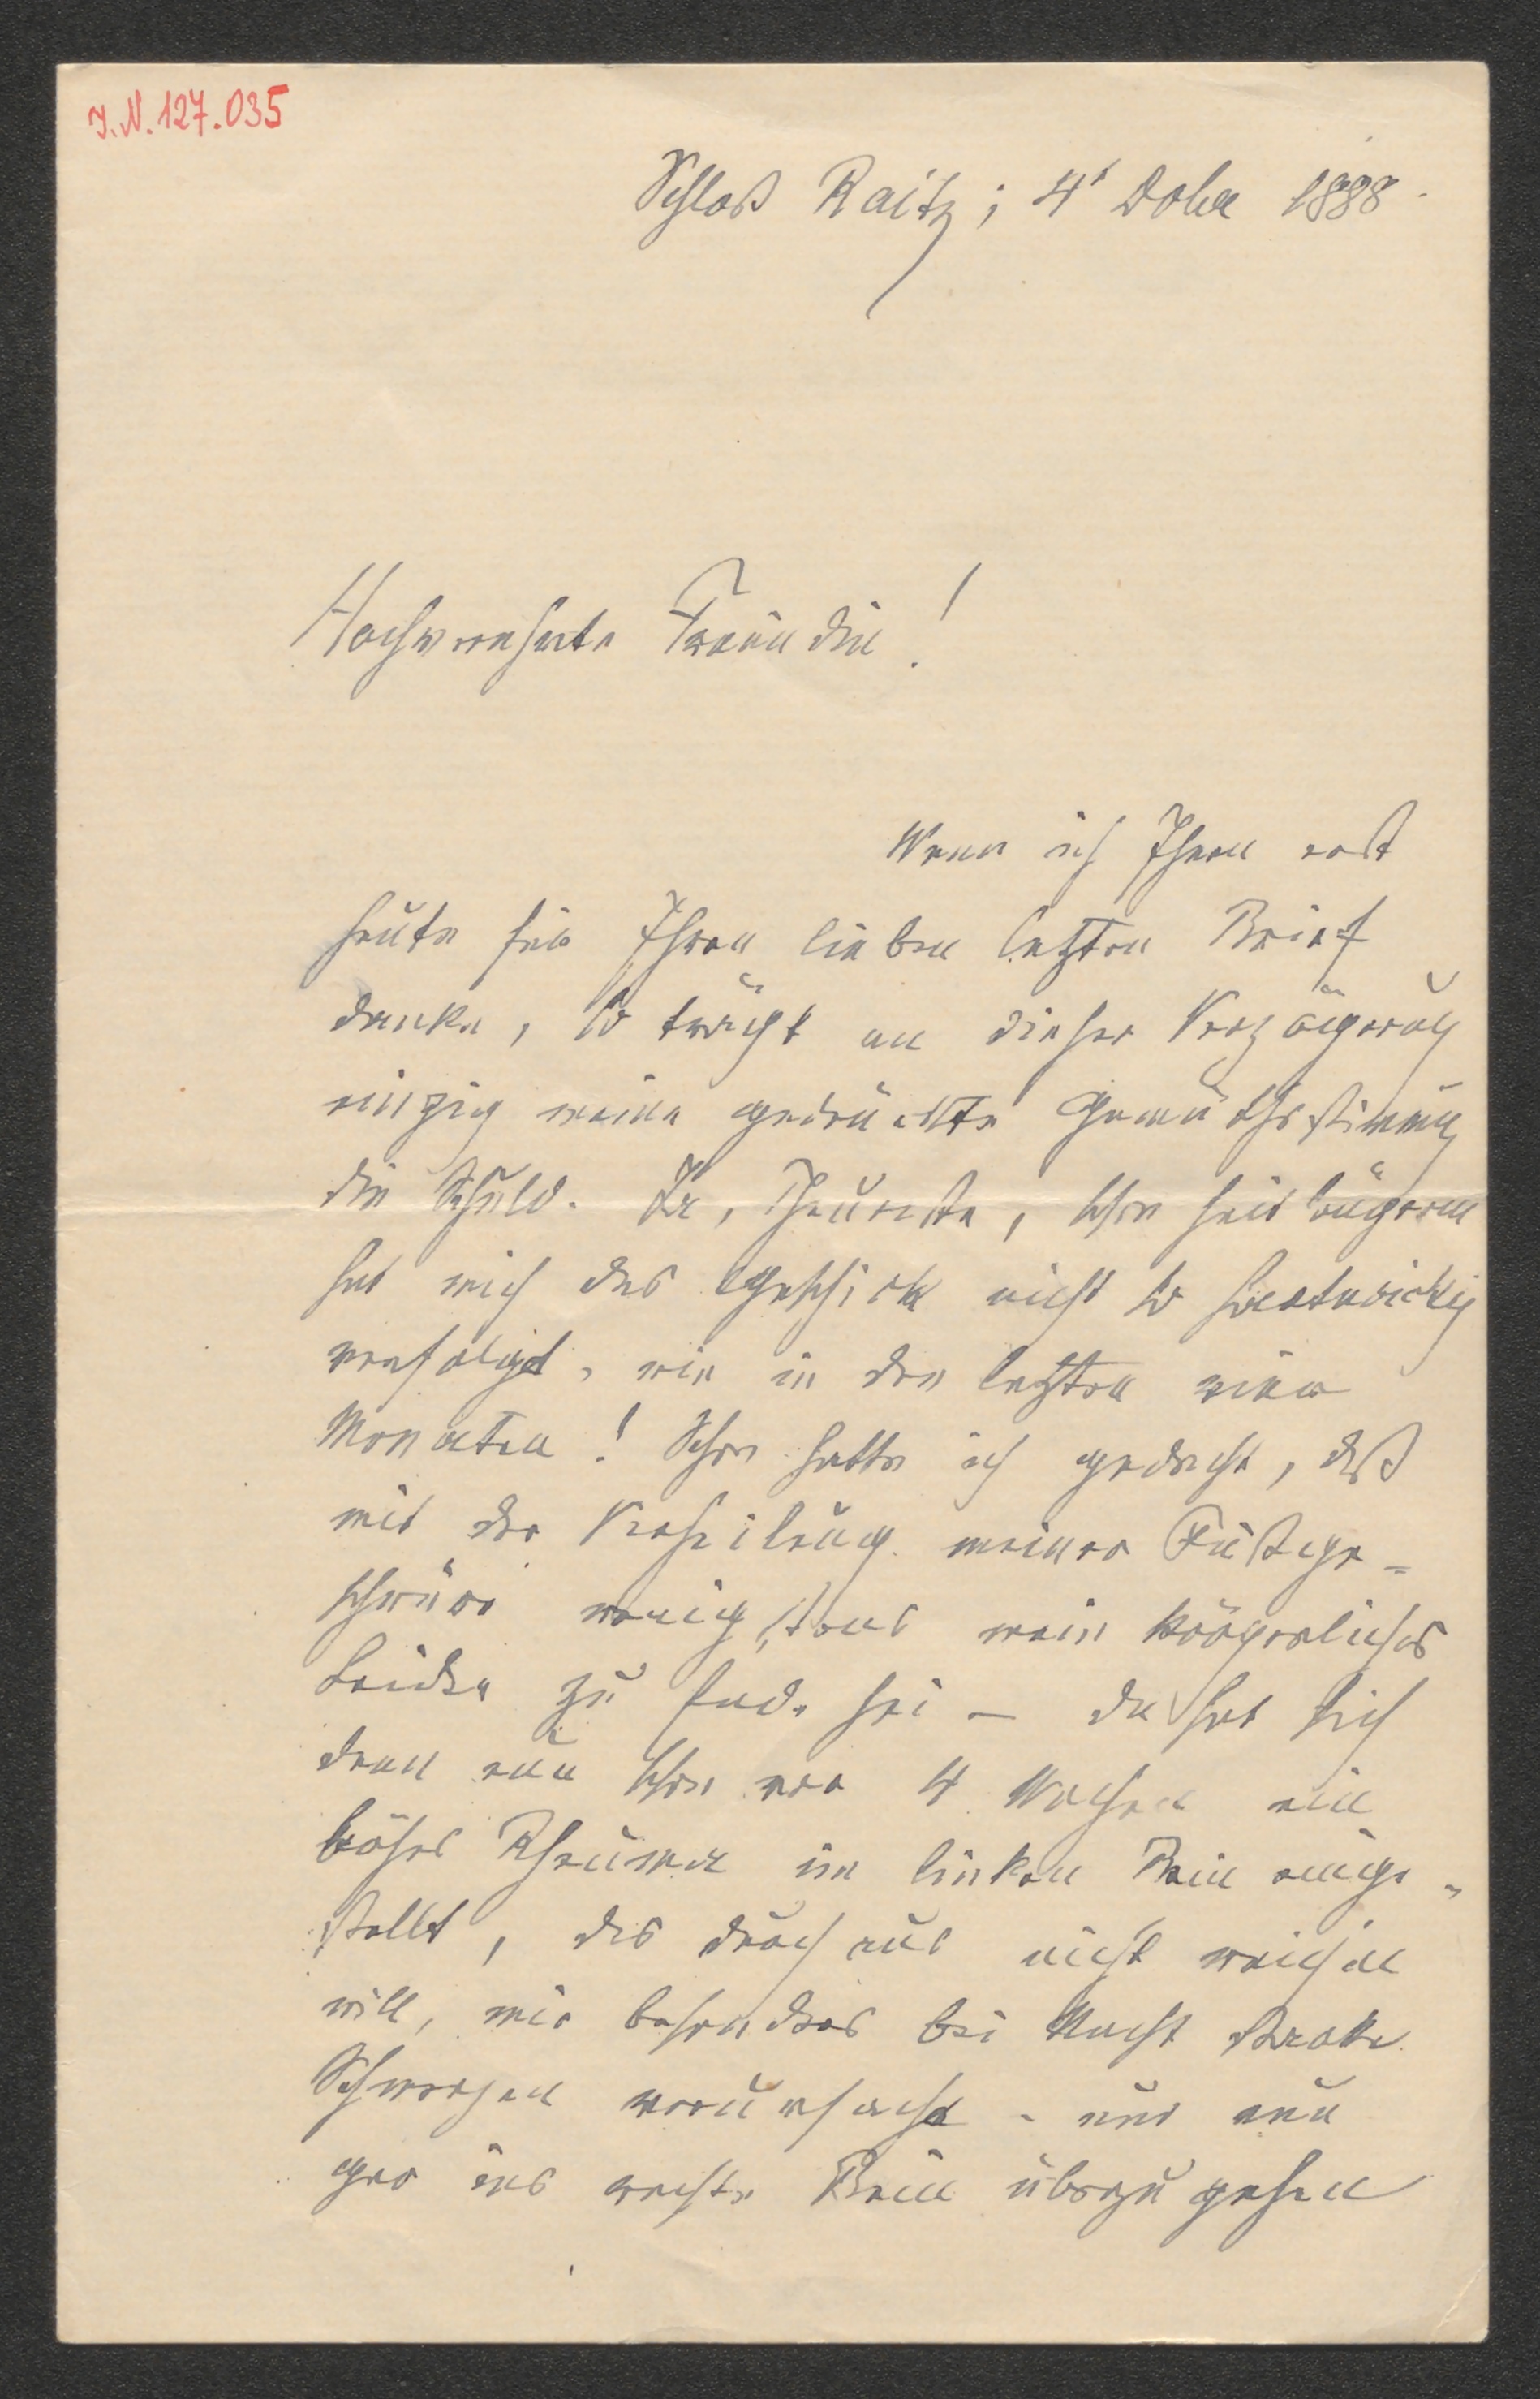 J.N. 127.035
Schloß Raitz; 4t Dobr 1888.
Hochverehrte Freundin!
Wenn ich Ihnen erst
heute für Ihren lieben letzten Brief
danke, so trägt an dieser Verzögerung
einzig meine gedrückte Gemüthsstimmung
die Schuld. Ja, Theuerste, schon seit längerem
hat mich das Geschick nicht so hartnäckig
verfolgt, wie in den letzten vier
Monaten! Schon hatte ich gedacht, daß
mit der Verheilung meiner Fußge-
schwüre wenigstens mein körperliches
Leiden zu Ende sei – da hat sich
denn nun schon vor 4 Wochen ein
böses Rheuma im linken Bein einge-
stellt, das durchaus nicht weichen
will, mir besonders bei Nacht starke
Schmerzen verursacht – und nun
gar ins rechte Bein überzugehen